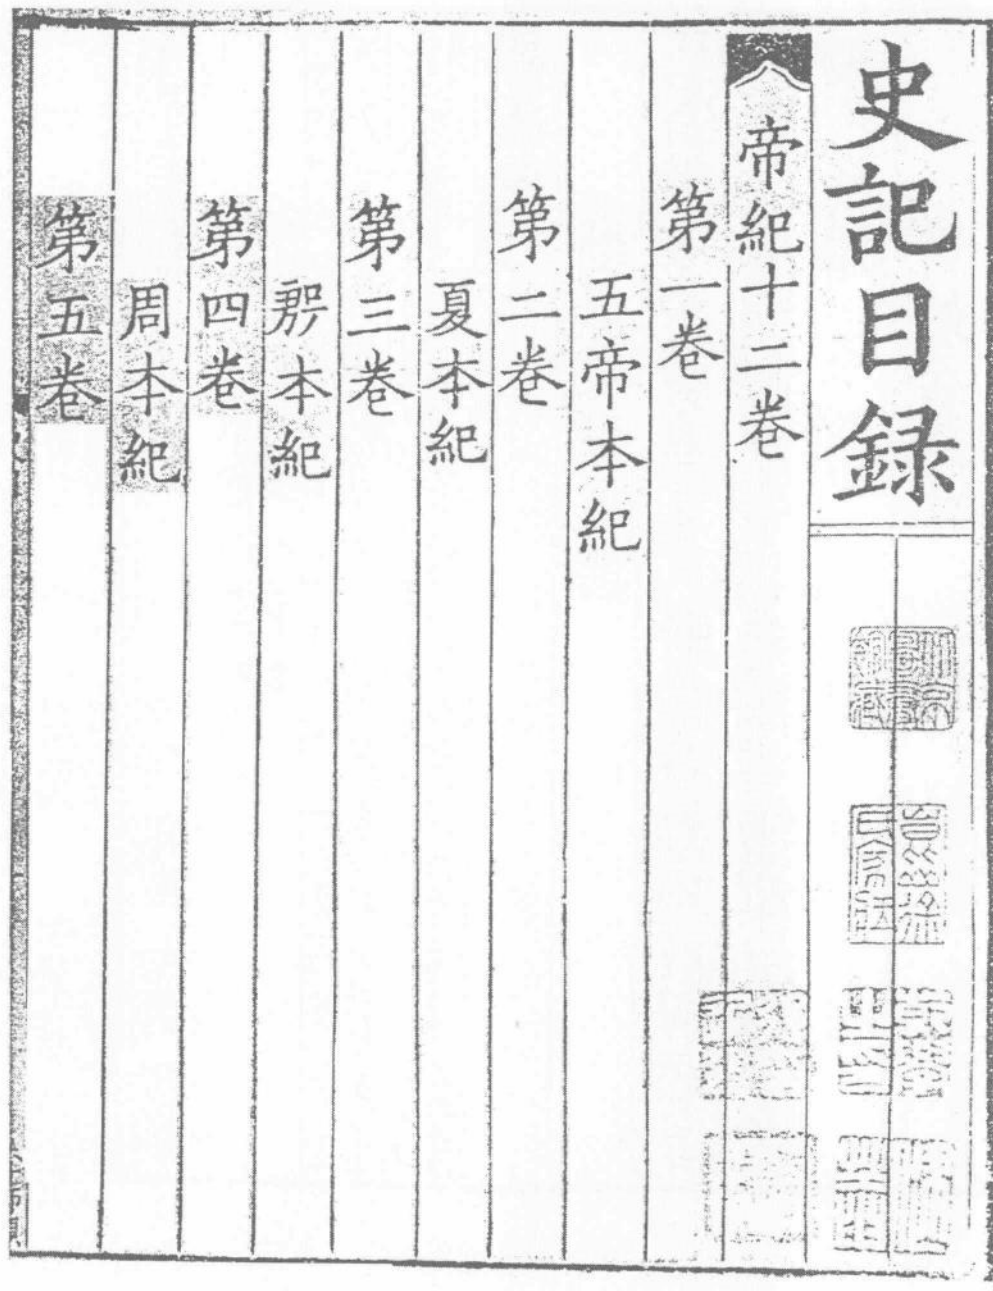 史記目録
帝紀十二卷
第一卷
五帝本紀
第二卷
夏本紀
第三卷
殷本紀
第四卷
周本紀
第五卷